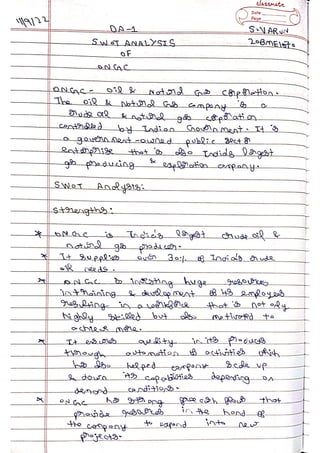 classmate
Date
Page
11/9/22
DA-1
S.VARUN
20BME1570
SWOT ANALYSIS
OF
ONGC
ONGC - Oil & Natural Gas Corporation.
The Oil & Natural Gas company is a
crude oil & natural gas corporation
controlled by Indian Government. It is
a government-owned public sector
enterprise that is also India's largest
gas producing & exploration company.
SWOT Analysis:
Strengths:
* ONGC is India's largest crude oil &
natural gas producer.
* It supplies over 30% of India's crude
oil needs.
* ONGC is investing huge resources
in training & development of its employees
resulting in a workforce that is not only
highly skilled but also motivated to
achieve more.
* It ensures quality in its products
through automation of activities which
has also helped company scale up
& down its capabilities depending on
demand conditions.
* ONGC has strong free cash flows that
provide resources in the hand of
the company to expand into new
projects.